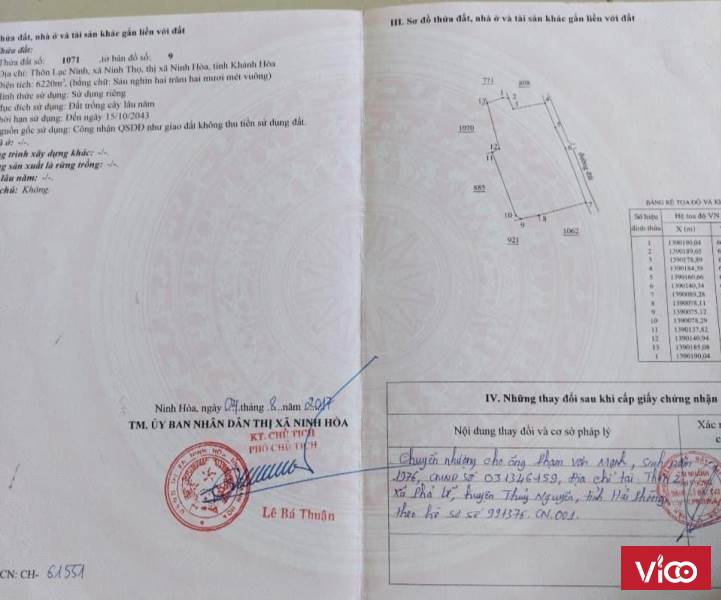 hửa đất, nhà ở và tài sản khác gắn liền với đất
hửa đất:
Thửa đất số: 1071 ,tờ bản đồ số: 9
Địa chỉ: Thôn Lạc Ninh, xã Ninh Thọ, thị xã Ninh Hòa, tỉnh Khánh Hòa
Diện tích: 6220m², (bằng chữ: Sáu nghìn hai trăm hai mươi mét vuông)
Hình thức sử dụng: Sử dụng riêng
Mục đích sử dụng: Đất trồng cây lâu năm
hời hạn sử dụng: Đến ngày 15/10/2043
guồn gốc sử dụng: Công nhận QSDĐ như giao đất không thu tiền sử dụng đất.
à ở: -/-.
g trình xây dựng khác: -/-.
g sản xuất là rừng trồng: -/-.
lâu năm: -/-.
chú: Không.
Ninh Hòa, ngày 04 tháng 8 năm 2017
TM. ỦY BAN NHÂN DÂN THỊ XÃ NINH HÒA
KT. CHỦ TỊCH
PHÓ CHỦ TỊCH
Lê Bá Thuận
CN: CH- 61551
III. Sơ đồ thửa đất, nhà ở và tài sản khác gắn liền với đất
771
808
1
2
3
4
5
6
đường đất
7
13
1070
12
11
885
10
9
8
921
1062
BẢNG KÊ TỌA ĐỘ VÀ K
Số hiệu đỉnh thửa
Hệ tọa độ VN
X (m)
1 1390190,04
2 1390189,65
3 1390178,89
4 1390184,39
5 1390160,66
6 1390140,34
7 1390089,28
8 1390078,11
9 1390075,12
10 1390078,29
11 1390137,82
12 1390140,94
13 1390185,08
1 1390190,04
IV. Những thay đổi sau khi cấp giấy chứng nhận
Nội dung thay đổi và cơ sở pháp lý
Xác
Chuyển nhượng cho ông Phạm Văn Mạnh, sinh năm
1976, CMND số 031346159, địa chỉ tại Thôn 2,
Xã Phả Lễ, huyện Thuỷ Nguyên, tỉnh Hải Phòng
theo hồ sơ số 991376.CN.001.
Vico